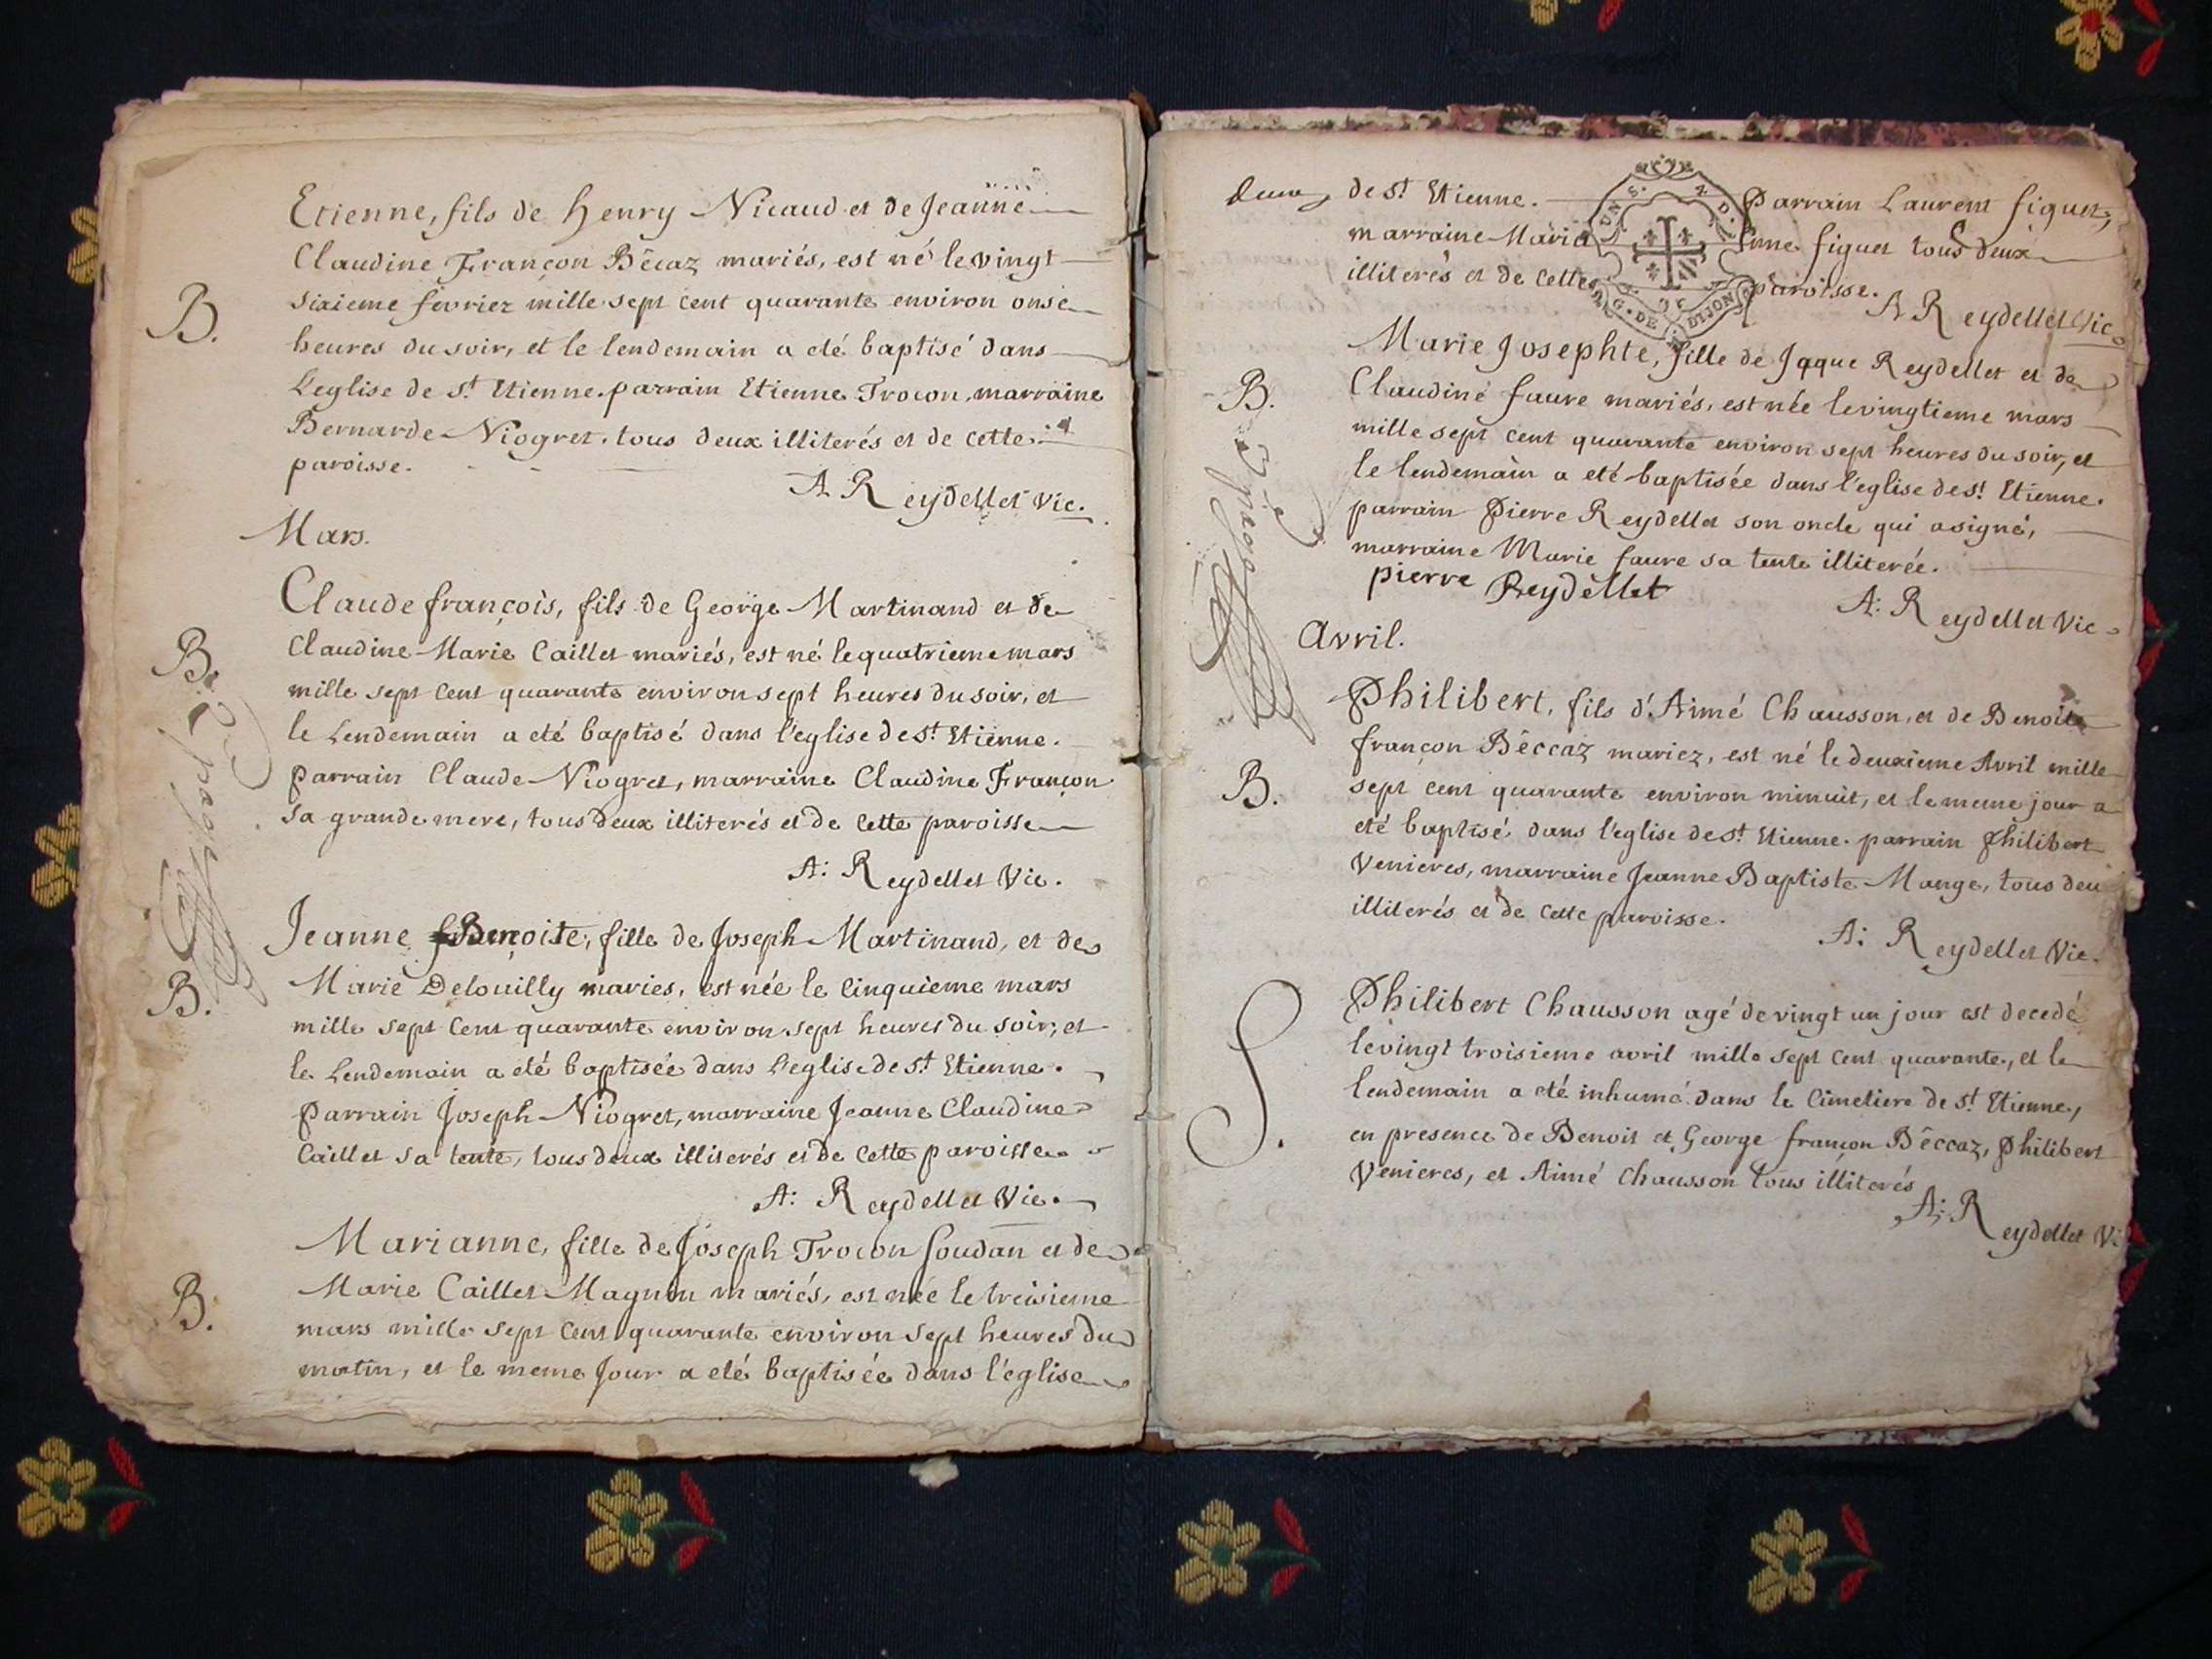 Etienne, fils de henry Nicaud et de Jeanne
Claudine Françon Bêcaz mariés, est né le vingt
B.
sixieme fevrier mille sept cent quarante environ onse
heures du soir, et le lendemain a eté baptisé dans
L'eglise de st Etienne. parrain Etienne Trocon, marraine
Bernarde Niogret. tous deux illiterés et de cette
paroisse.
A Reydellet vic.
Mars.
Claude françois, fils de George Martinand et de
B.
Claudine Marie Caillet mariés, est né le quatrieme mars
mille sept cent quarante environ sept heures du soir, et
le Lendemain a eté baptisé dans l'eglise de st Etienne.
parrain Claude Niogret, marraine Claudine Françon
Sa grande mere, tous deux illiterés et de cette paroisse
A: Reydellet Vic.
Jeanne Benoite, fille de Joseph Martinand, et de
B.
Marie Delouilly mariés, est née le cinquieme mars
mille sept cent quarante environ sept heures du soir, et
le Lendemain a eté baptisée dans L'eglise de st Etienne.
parrain Joseph Niogret, marraine Jeanne Claudine
Caillet sa tente, tous deux illiterés et de cette paroisse.
A: Reydellet Vic.
Marianne, fille de Joseph Trocon Soudan et de
B.
Marie Caillet Magnin mariés, est née le treisieme
mars mille sept cent quarante environ sept heures du
matin, et le meme Jour a eté baptisée dans l'eglise
deux
de st Etienne. Parrain Laurent figuet,
marraine Marie figuet tous deux
illiterés et de cette paroisse.
G. DE DIJON
A Reydellet Vic
Marie Josephte, fille de Jaque Reydellet et de
B.
Claudine faure mariés, est née le vingtieme mars
mille sept cent quarante environ sept heures du soir, et
le lendemain a eté baptisée dans l'eglise de st Etienne.
parrain Pierre Reydellet son oncle qui a signé,
marraine Marie faure sa tente illiterée.
pierre Reydellet
A: Reydellet Vic
Avril.
Philibert, fils d'Aimé Chausson, et de Benoite
françon Bêccaz mariez, est né le deuxieme Avril mille
B.
sept cent quarante environ minuit, et le meme jour a
eté baptisé dans l'eglise de st Etienne. parrain Philibert
Venieres, marraine Jeanne Baptiste Mange, tous deu
illiterés et de cette paroisse.
A: Reydellet Vic.
S.
Philibert Chausson agé de vingt un jour est decedé
le vingt troisieme avril mille sept cent quarante, et le
lendemain a eté inhumé dans le cimetiere de st Etienne,
en presence de Benoit et George françon Bêccaz, Philibert
Venieres, et Aimé Chausson tous illiterés
A: Reydellet Vi